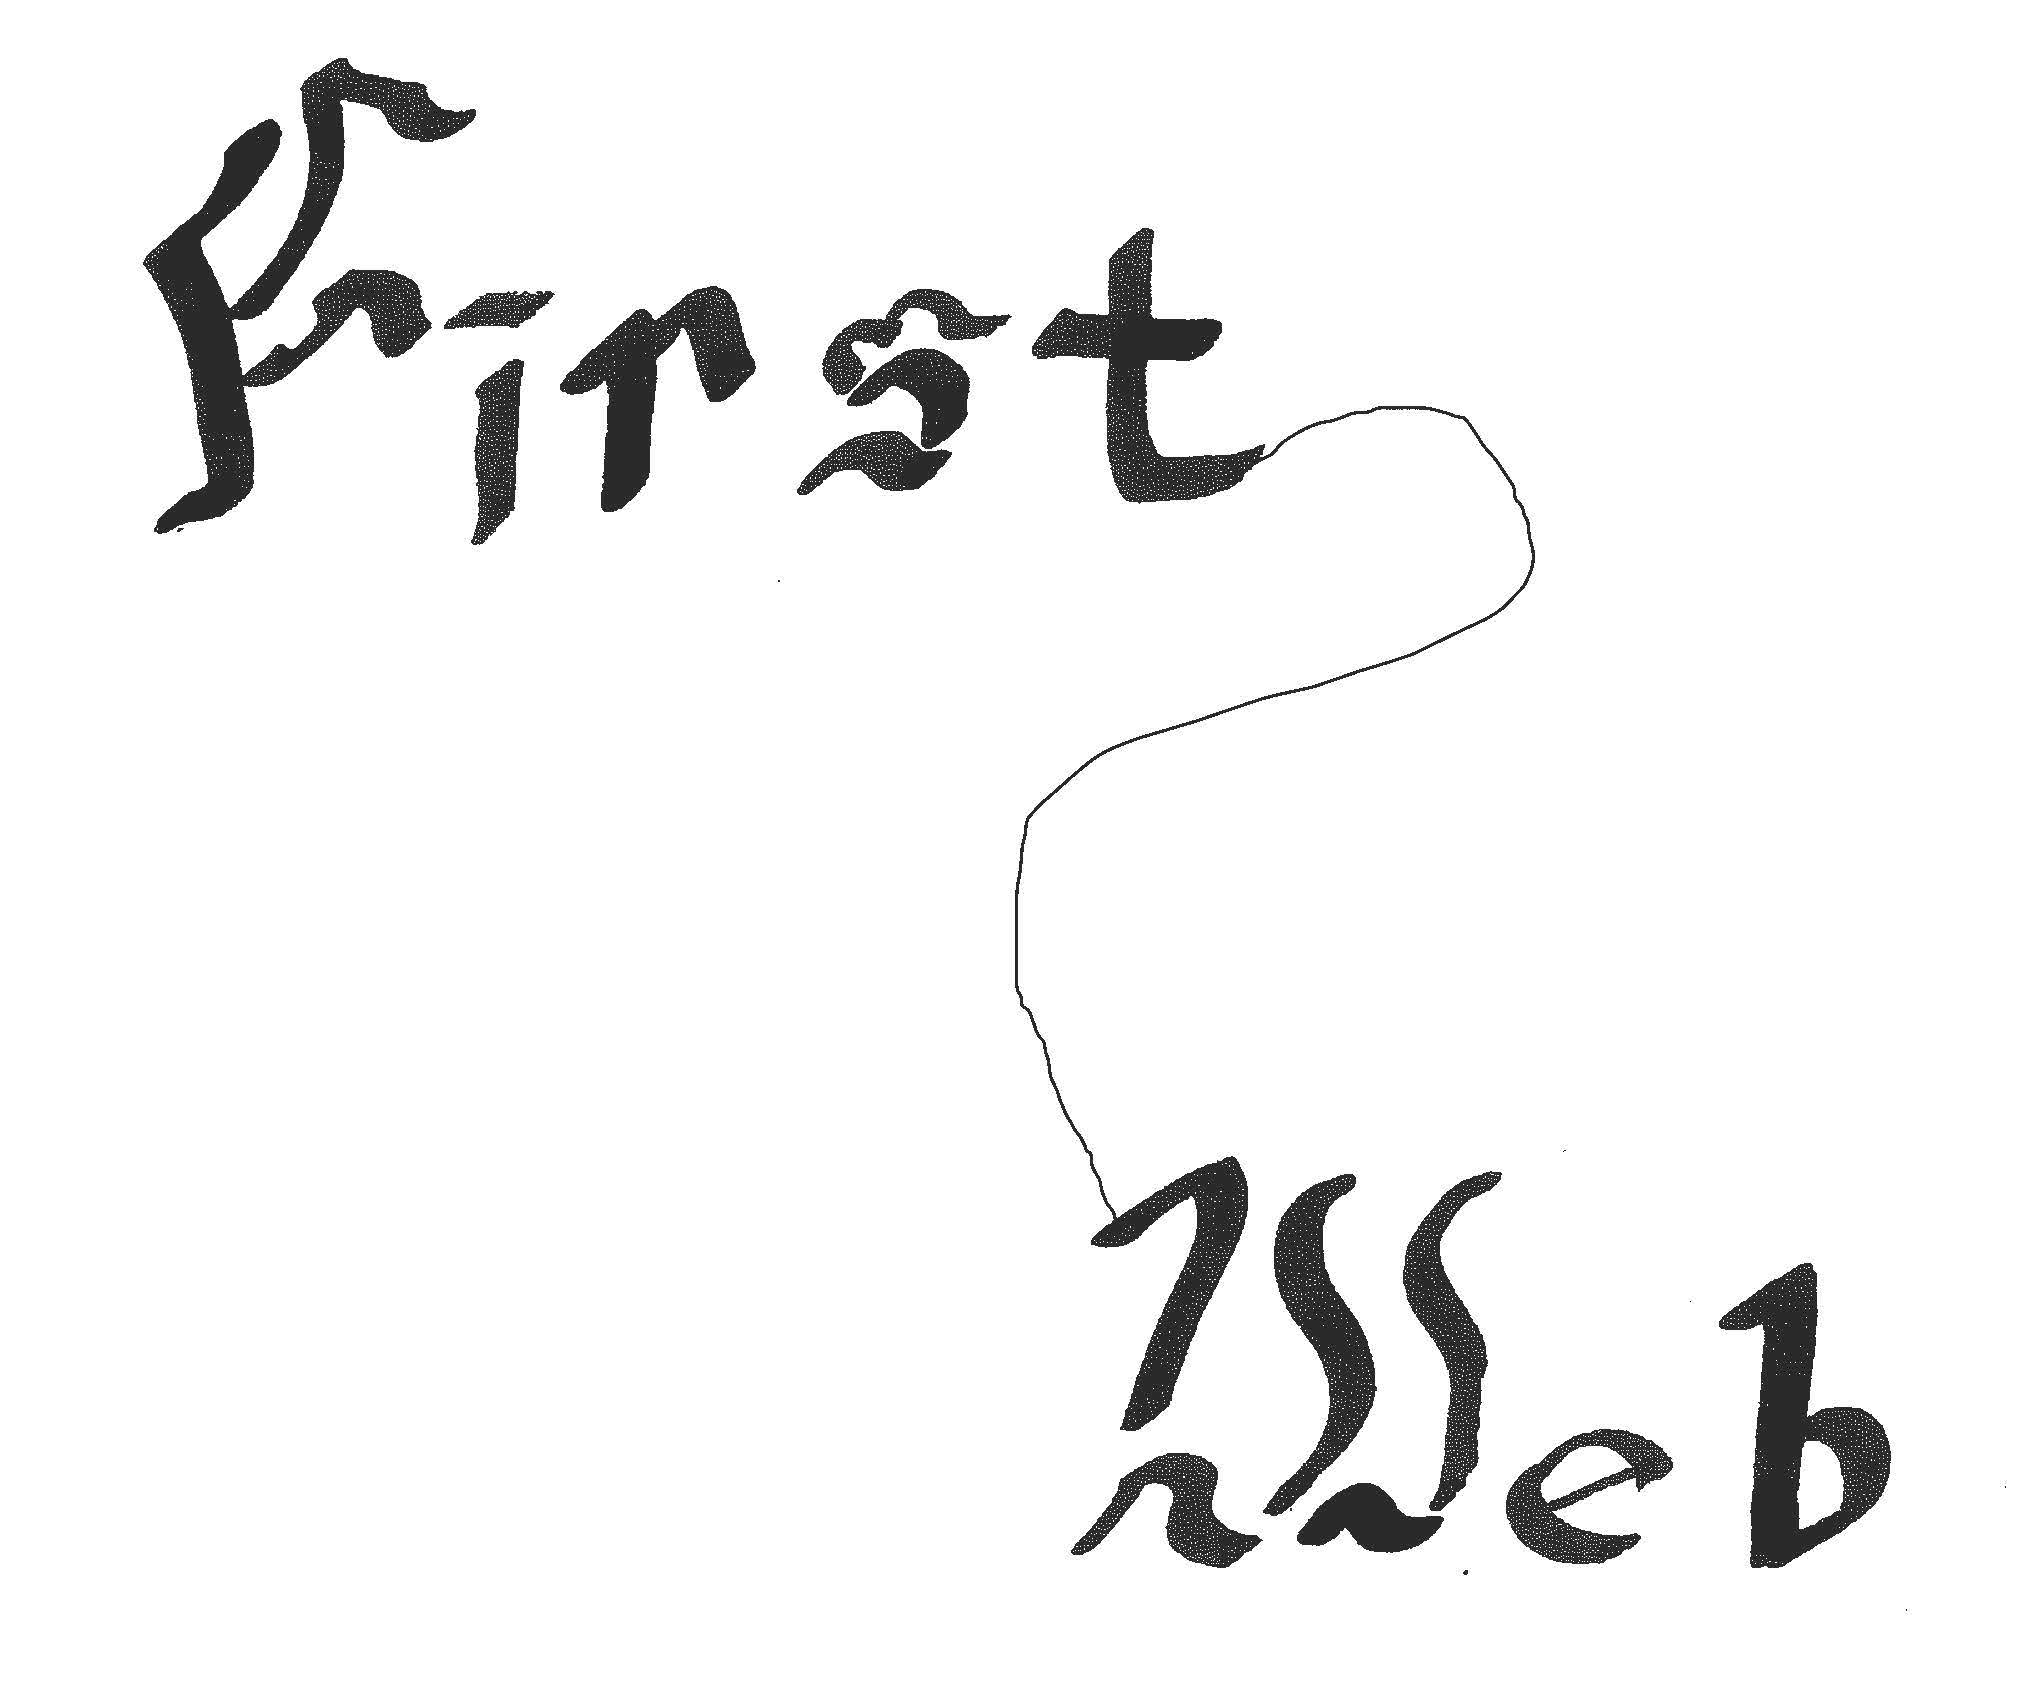 First
Web